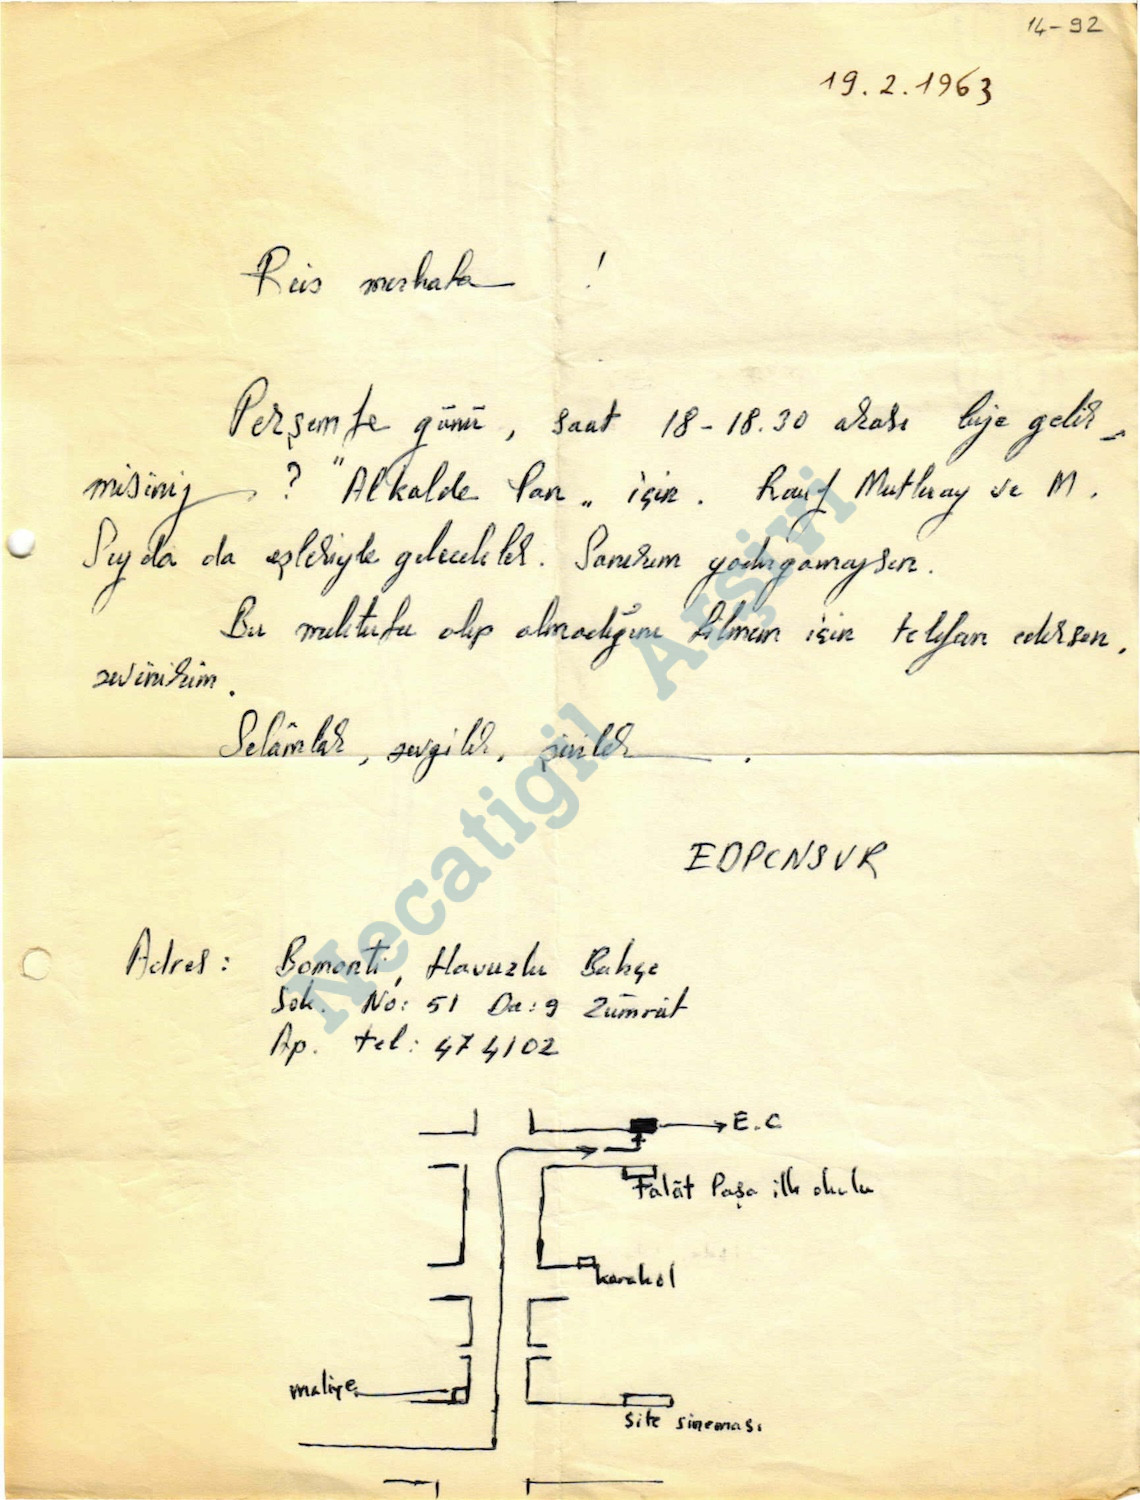 14-92
19.2.1963
Reis merhaba !
Perşembe günü, saat 18-18.30 arası bize gelir
misiniz ? "Alkolde Pan" için. Rauf Mutluay ve M.
Seyda da eşleriyle gelecekler. Sanırım yadırgamazsın.
Bu mektubu alıp almadığını bilmem için telefon edersen,
sevinirim.
Selâmlar, sevgiler, şiirler .
EDPCNSVR
Adres: Bomonti, Havuzlu Bahçe
Sok. No: 51 Da: 9 Zümrüt
Ap. tel: 474102
E.C
Talât Paşa ilk okulu
karakol
maliye
Site sineması
Necatigil Arşivi